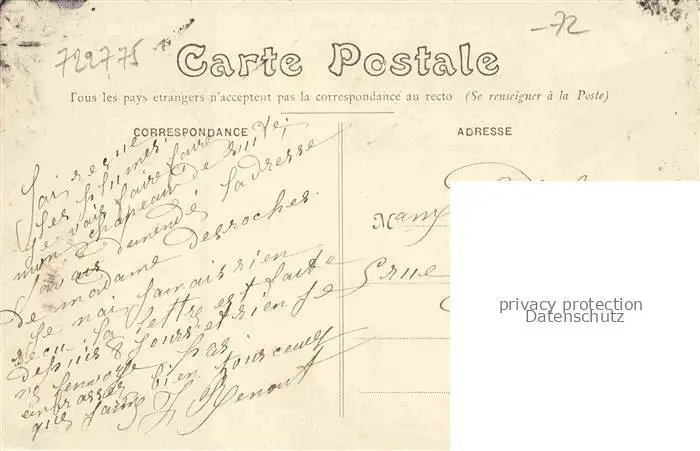 722775
-72
Carte Postale
Tous les pays etrangers n'acceptent pas la correspondance au recto (Se renseigner à la Poste)
CORRESPONDANCE
J'ai reçue
les plumes.
Je vais faire faire
mon chapeau de suite,
J'avais demandé l'adresse
de madame desroches.
Je nai jamais rien
recu. la lettre est faite
depuis 8 jours et rien Je
ne lenvoye pas
enbrasses bien tous ceux
Renout
ADRESSE
privacy protection
Datenschutz